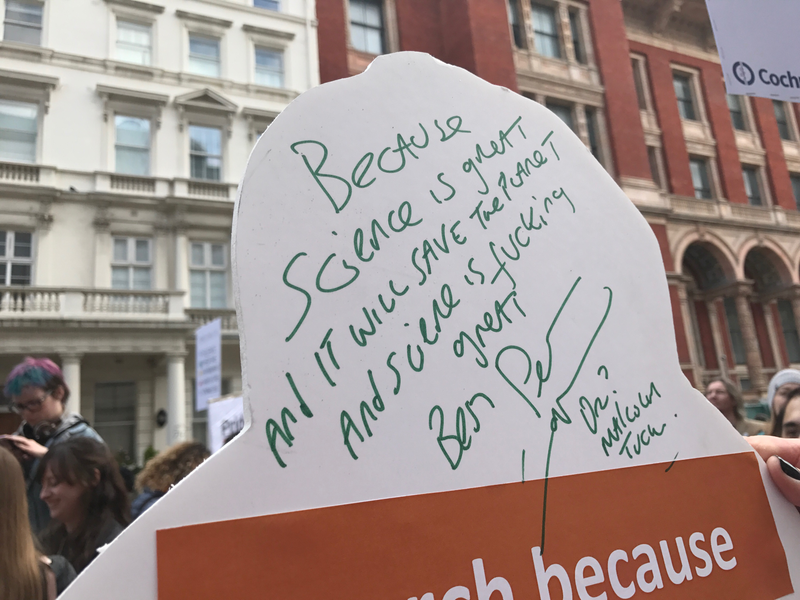 BECAUSE
SCIENCE IS GREAT
And IT WILL SAVE The PLANET
And SCIENCE IS fucking
GREAT
Malcolm
Tuck.
rch because
Cochr